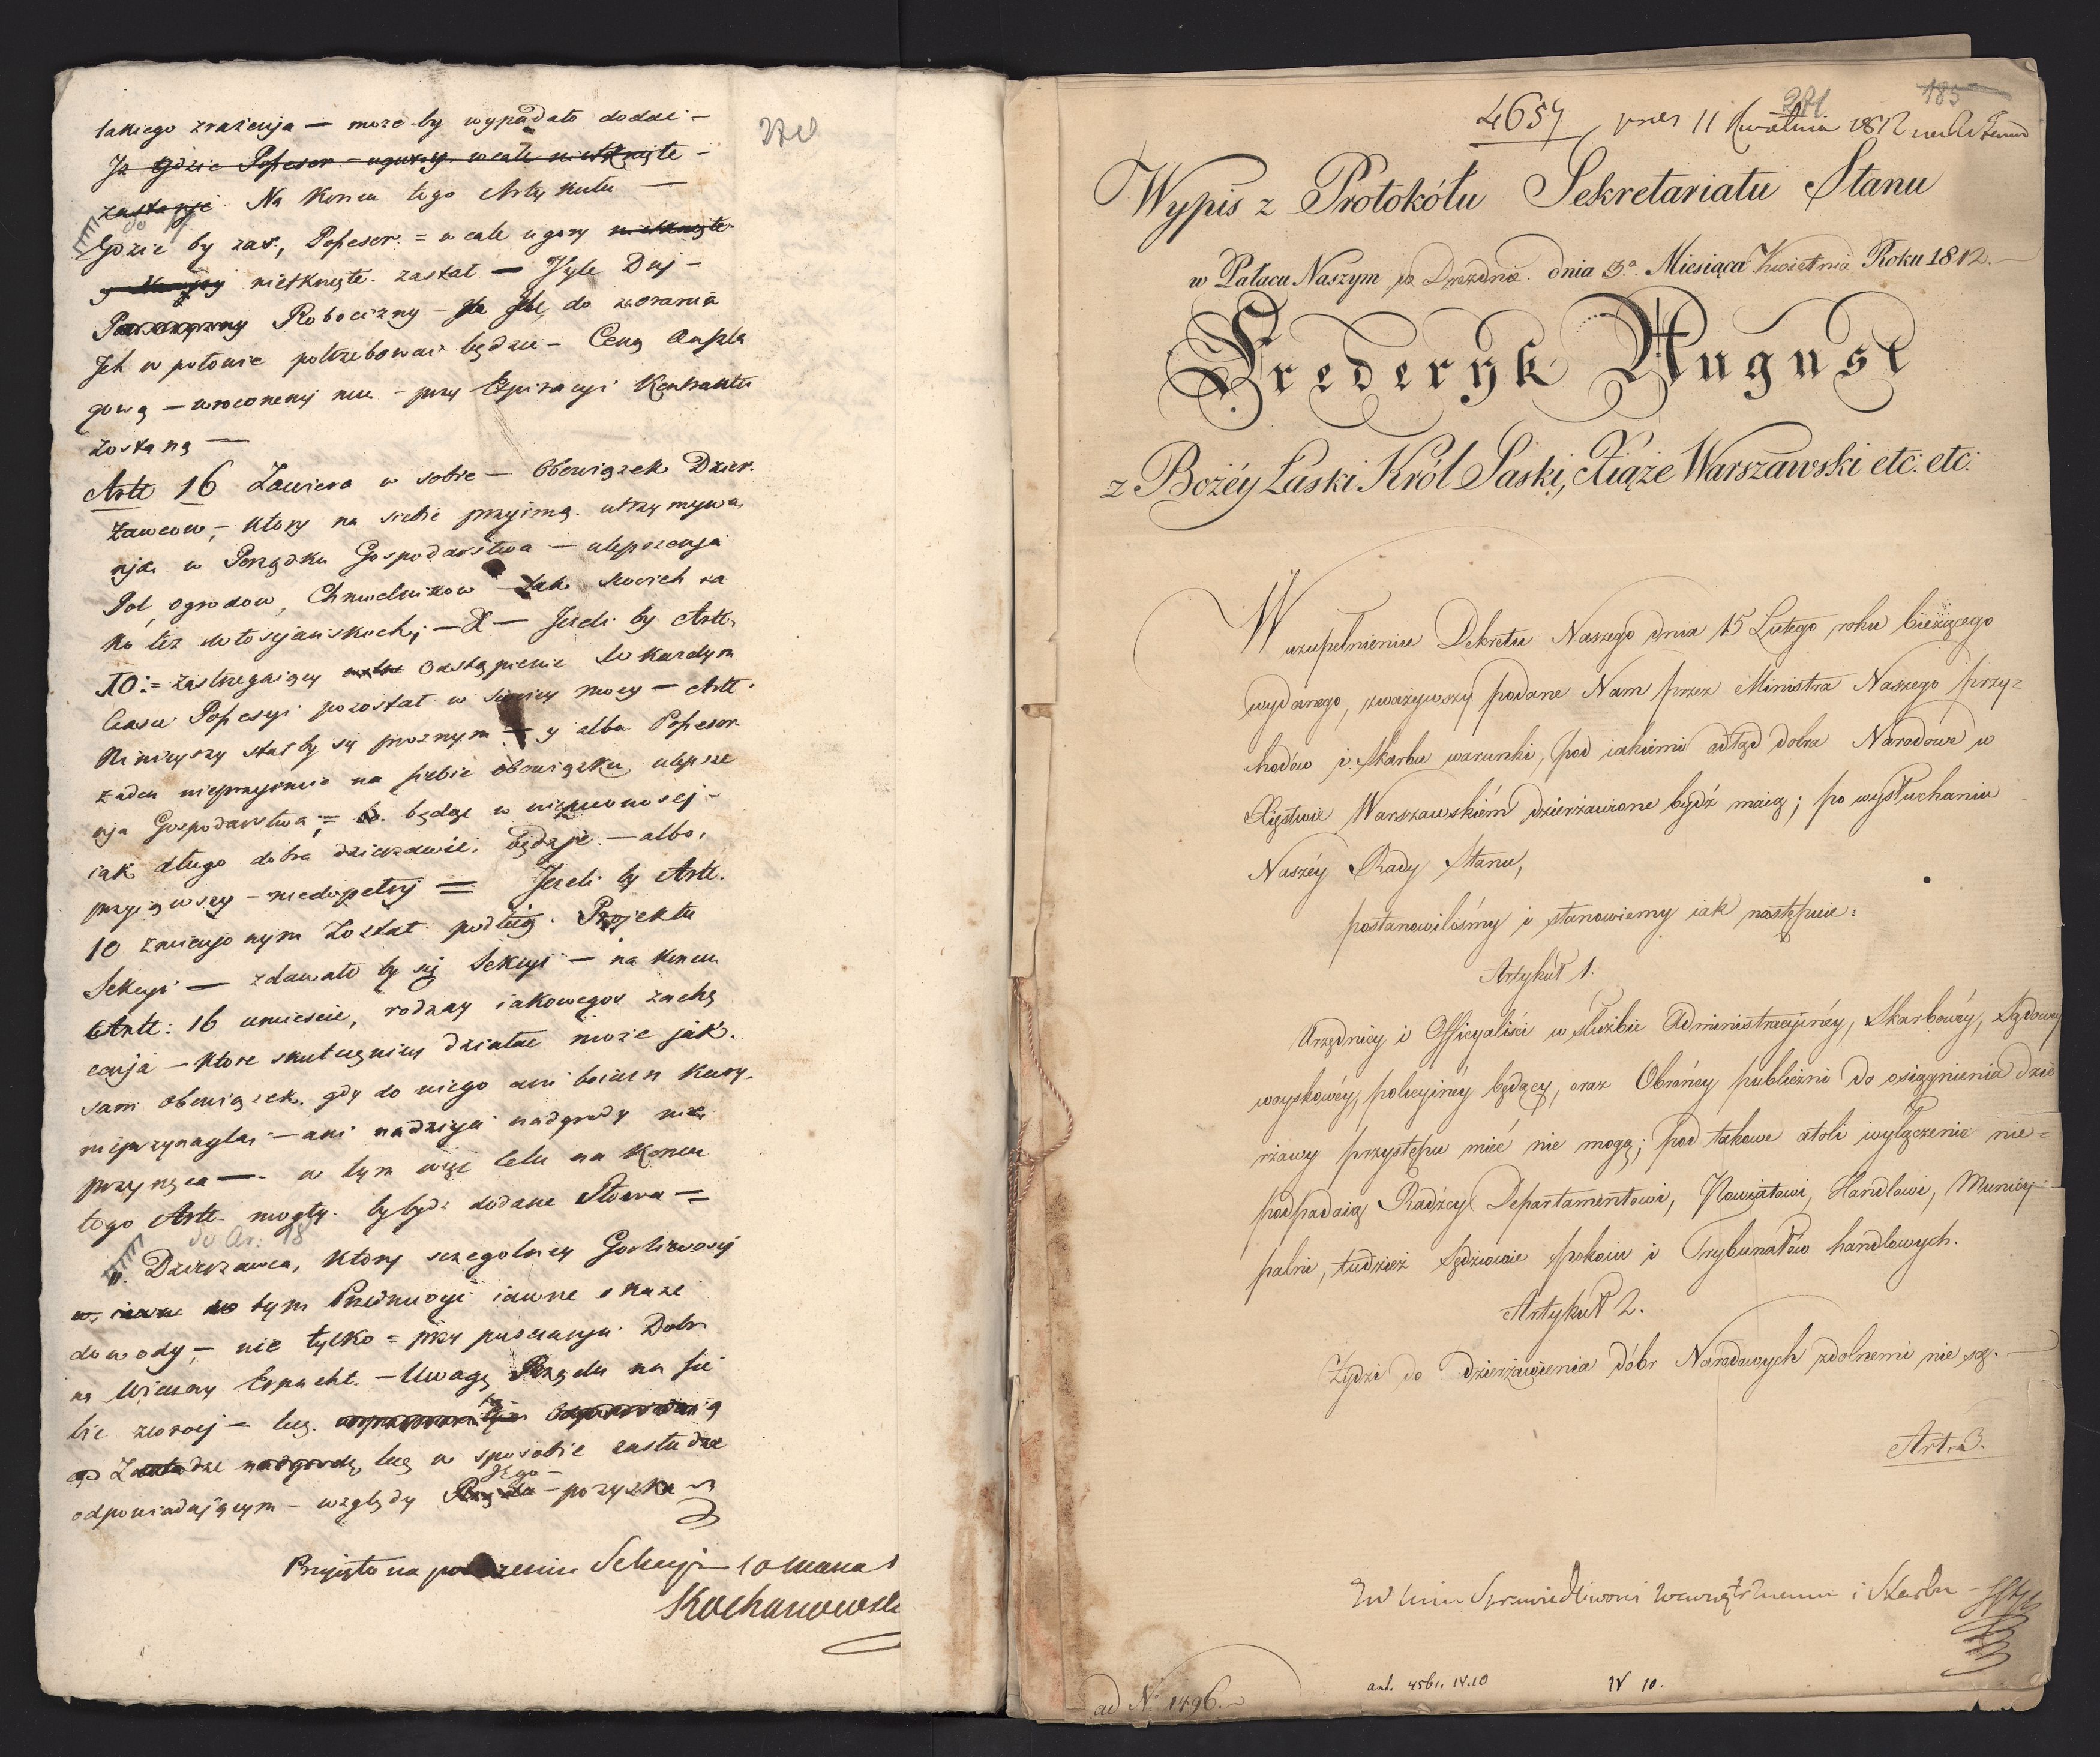 270
takiego zrażenja — może by wypadało dodać —
Iż gdzie Possesor — ugory wcale nietknięte —
zastanje. Na końcu tego Artykułu —
do 17
Gdzie by zaś, Possesor = wcale ugory nietknięte
nietknięte zastał — Tyle Dnj —
Robocizny — do zaorania
Ich w połowie potrzebować będzie — Ceną Anszla
gową — wrocone mu — przy Expiracyi Kontraktu
zostaną —
Artt 16 Zawiera w sobie — Obowiązek Dzier.
żawcow, — ktory na siebie przyimą utrzymywa
nja w Porządku Gospodarstwa — ulepszenja
Pol, ogrodow, Chmielnikow — tak swoich ja
ko też włosjańskich; — X — Jeżeli by Artt.
10 := zastrzegaiący odstąpienie w każdym
czasie Possesyi pozostał w swoiey mocy — Artt.
Ninieyszy stał by się proznym — y albo Possesor
żaden nieprzyimie na siebie obowiązku ulepsze
nja Gospodarstwa; = będąc w niepewnosci —
iak długo dobra dzierzawić będzie. — albo,
przyiąwszy — niedopełnj = Jeżeli by Artt.
10 zmienjonym został podług Projektu
Sekcyi — zdawało by się Sekcyi — na końcu
Artt: 16 umiescić, rodzay iakowegos zachę
cenja — ktore skuteczniey działać może jak
sam obowiązek. gdy do niego ani boiazn kary
nieprzynagla; — ani nadzieja nadgrody nie
przynęca — w tym więc celu na końcu
tego Artt mogły by bydź dodane Słowa =
do Ar: 18
Dzierzawca, ktory szczegolney Gorliwosci
w tym Przedmiocie iawne okaże
dowody, — nie tylko = przy puszczenju Dobr
na Wieczny Erpacht. — Uwagę Rządu na sie
bie zwroci — lecz
lecz w sposobie zasłudze
Jego —
odpowiadającym — względy Rządu — pozyska
Przyięto na posiedzeniu Sekcyi 10 Marca
Kochanowski
271
185
4654 pres 11 Kwietnia 1812
Wypis z Protokółu Sekretariatu Stanu
w Pałacu Naszym w Dreznie. dnia 3.ª Miesiąca Kwietnia Roku 1812. —
Frederyk August
z Bożéy Łaski Król Saski, Xiąże Warszawski etc: etc:
W uzupełnieniu Dekretu Naszego dnia 15 Lutego roku bieżącego
wydanego, zważywszy podane Nam przez Ministra Naszego przy=
chodów i Skarbu warunki, pod iakiemi odtąd dobra Narodowe w
Xięstwie Warszawskiém dzierżawione bydź maią; po wysłuchaniu
Naszéy Rady Stanu,
postanowiliśmy i stanowiemy iak następuie:
Artykuł 1.
Urzędnicy i Officyaliści w służbie Administracyinéy, Skarbowéy, Sądowéy
woyskowéy, policyinéy będący, oraz Obrońcy publiczni do osiągnienia dzie
rżawy przystępu mieć nie mogą; pod takowe atoli wyłączenie nie=
podpadaią Radźcy Departamentowi, Powiatowi, Handlowi, Municy=
palni, tudzież Sędziowie pokoiu i Trybunałów handlowych.
Artykuł 2.
Żydzi do dzierżawienia dóbr Narodowych zdolnemi nie są. —
Art. 3.
Sprawiedliwosci wewnętrznemu i Skarbu —
ad Nº 1496.
ant. 4561. IV.10
IV 10.